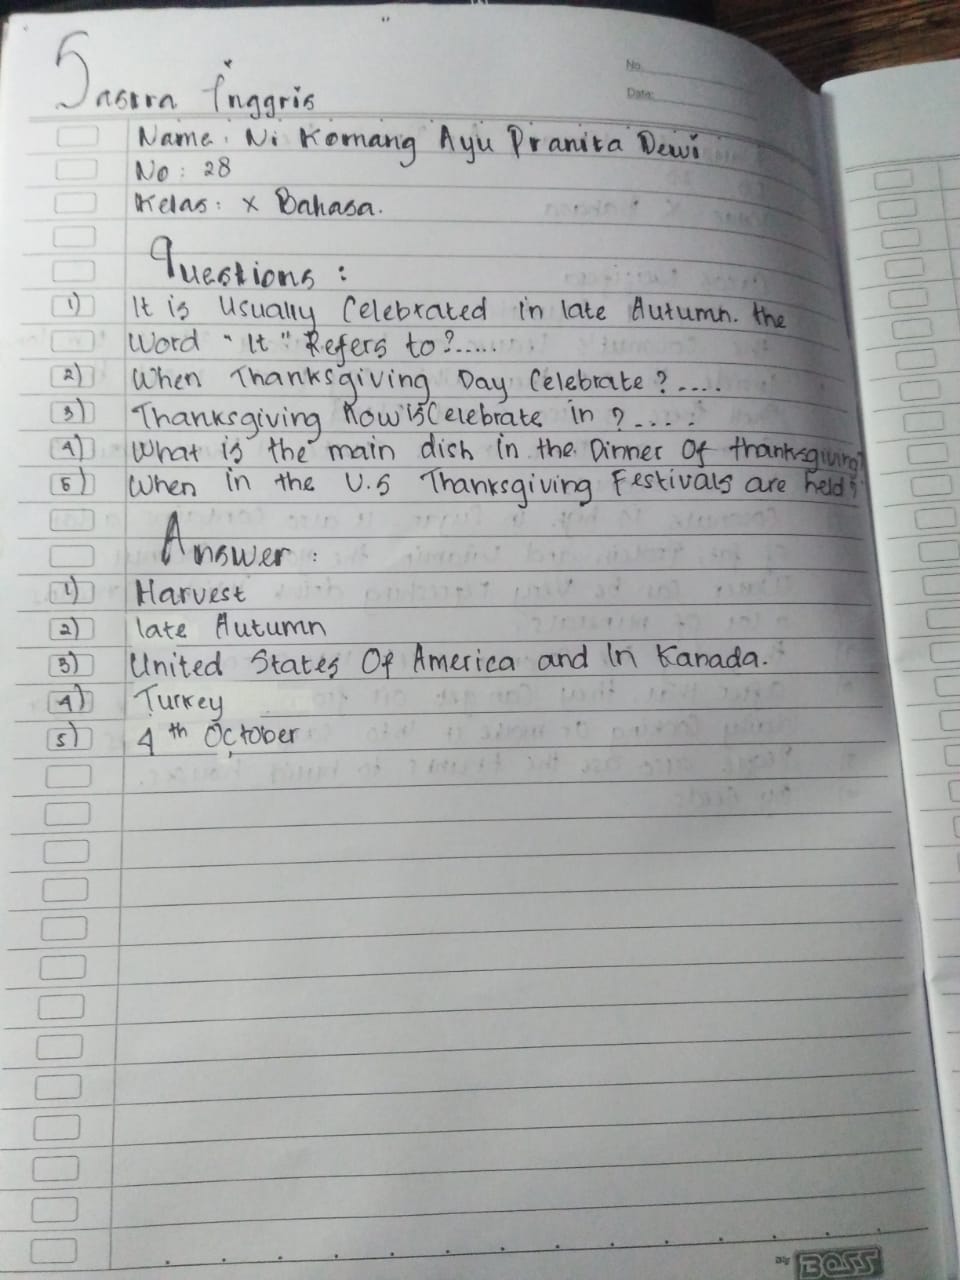 Sastra Inggris
No.
Date:
Name : Ni Komang Ayu Pranita Dewi
No : 28
Kelas : X Bahasa.
Questions :
1) It is Usually Celebrated in late Autumn. the
Word "It" Refers to?.....
2) When Thanksgiving Day Celebrate?....
3) Thanksgiving Now is Celebrate in ?....
4) What is the main dish in the Dinner Of thanksgiving?
5) When in the U.S Thanksgiving Festivals are held?
Answer :
1) Harvest
2) late Autumn
3) United States Of America and In Kanada.
4) Turkey
5) 4th October
By BOSS